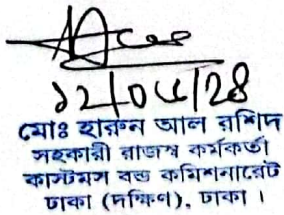 ১২/০৫/২৪
মোঃ হারুন আল রশিদ
সহকারী রাজস্ব কর্মকর্তা
কাস্টমস বন্ড কমিশনারেট
ঢাকা (দক্ষিণ), ঢাকা ।